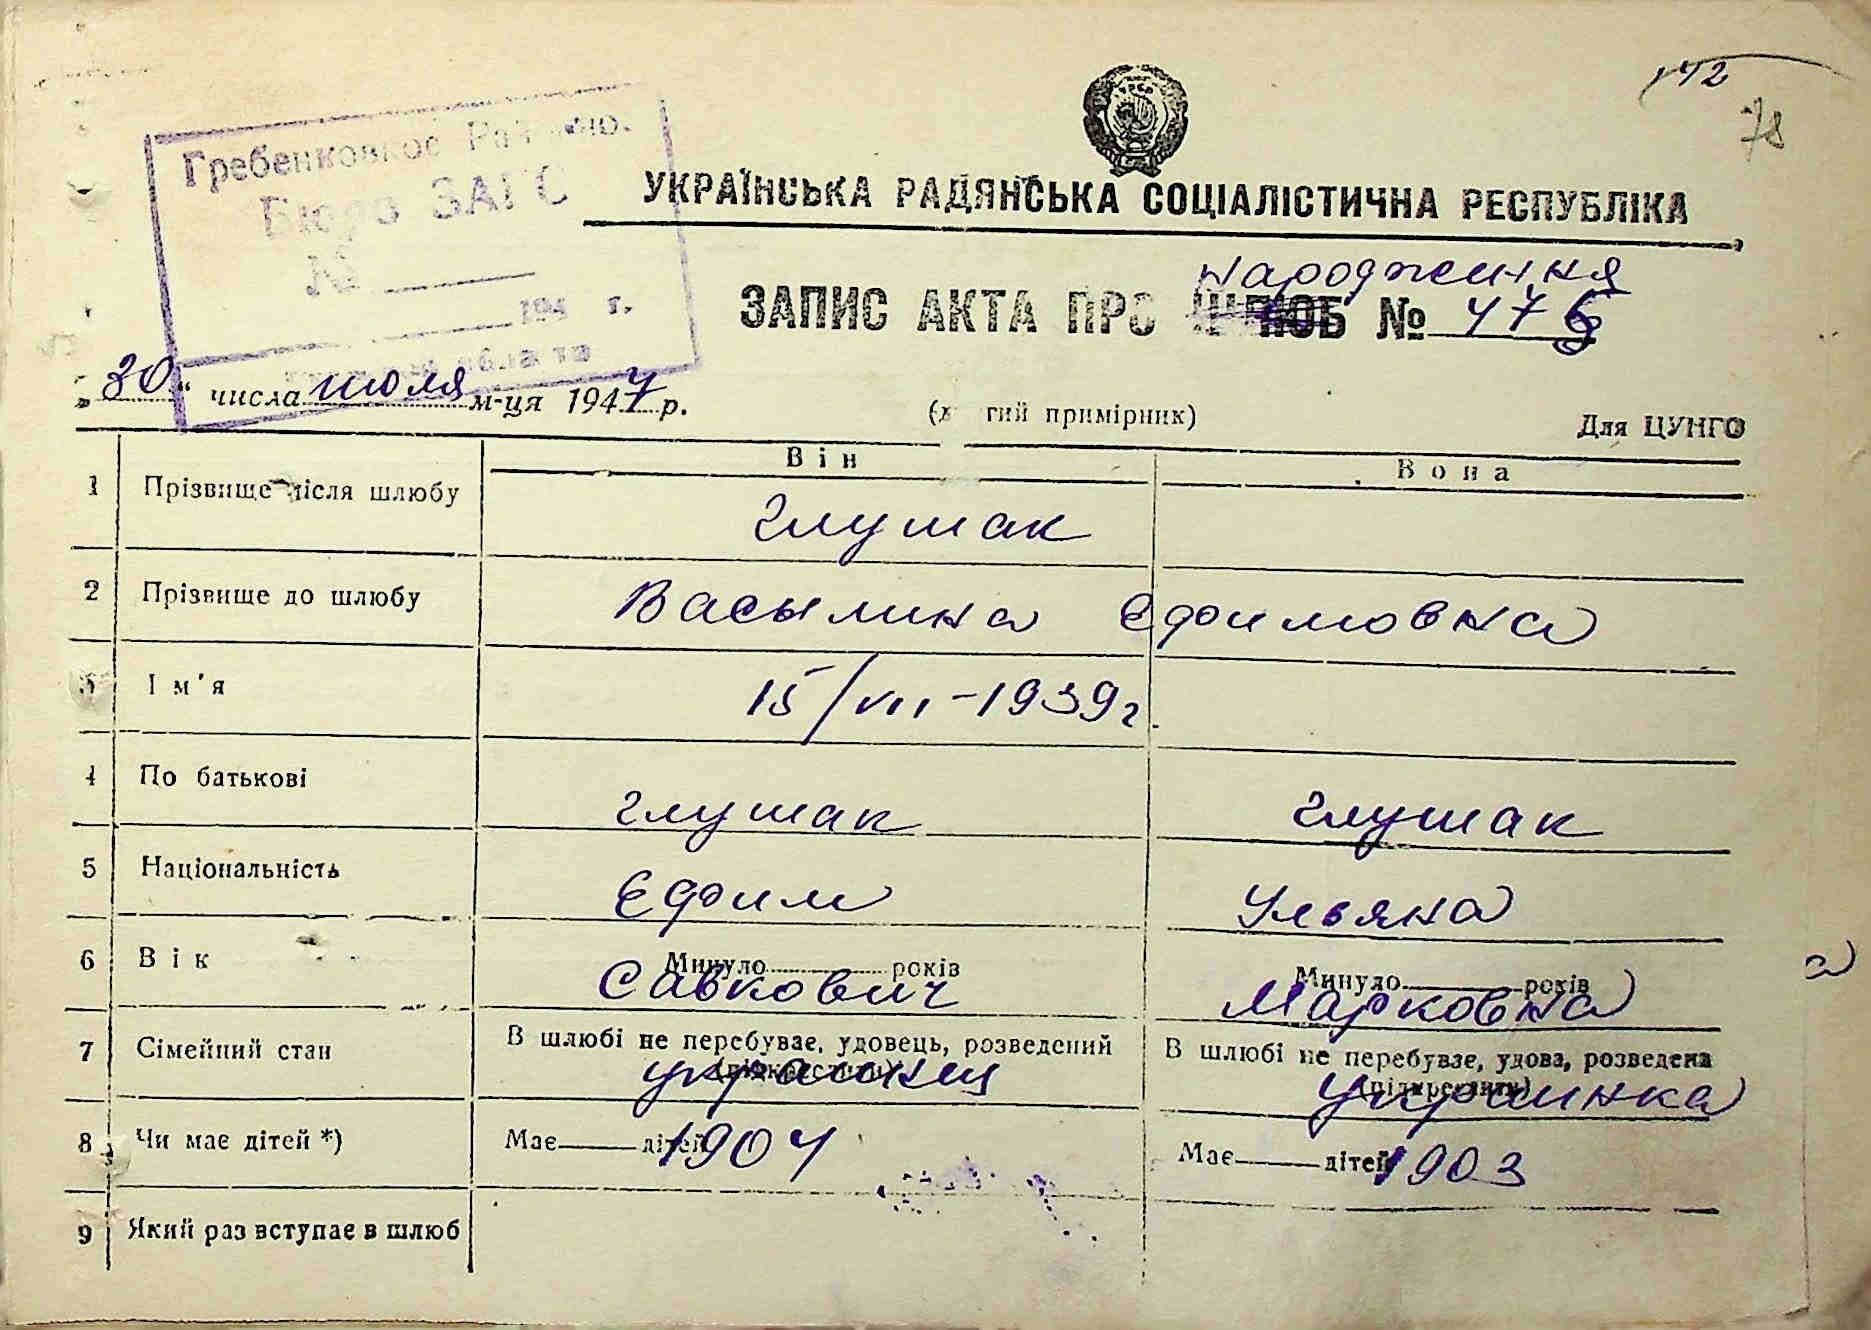 142
78
Гребенковское Районо.
Бюро ЗАГС
№
194 г.
УКРАЇНСЬКА РАДЯНСЬКА СОЦІАЛІСТИЧНА РЕСПУБЛІКА
народження
ЗАПИС АКТА ПРО ШЛЮБ № 476
„30“ числа июля м-ця 1947 р.
(другий примірник)
Для ЦУНГО
Він Вона
1 Прізвище після шлюбу Глушак
2 Прізвище до шлюбу Васылина Едфимовна
3 Ім'я 15/VII-1939г.
4 По батькові Глушак Глушак
5 Національність Едфим Ульяна
6 Вік Минуло років Савкович Минуло років Марковна
7 Сімейний стан В шлюбі не перебуває, удовець, розведений (підкреслити) украинец В шлюбі не перебуває, удова, розведена (підкреслити) Украинка
8 Чи має дітей *) Має дітей 1904 Має дітей 1903
9 Який раз вступає в шлюб